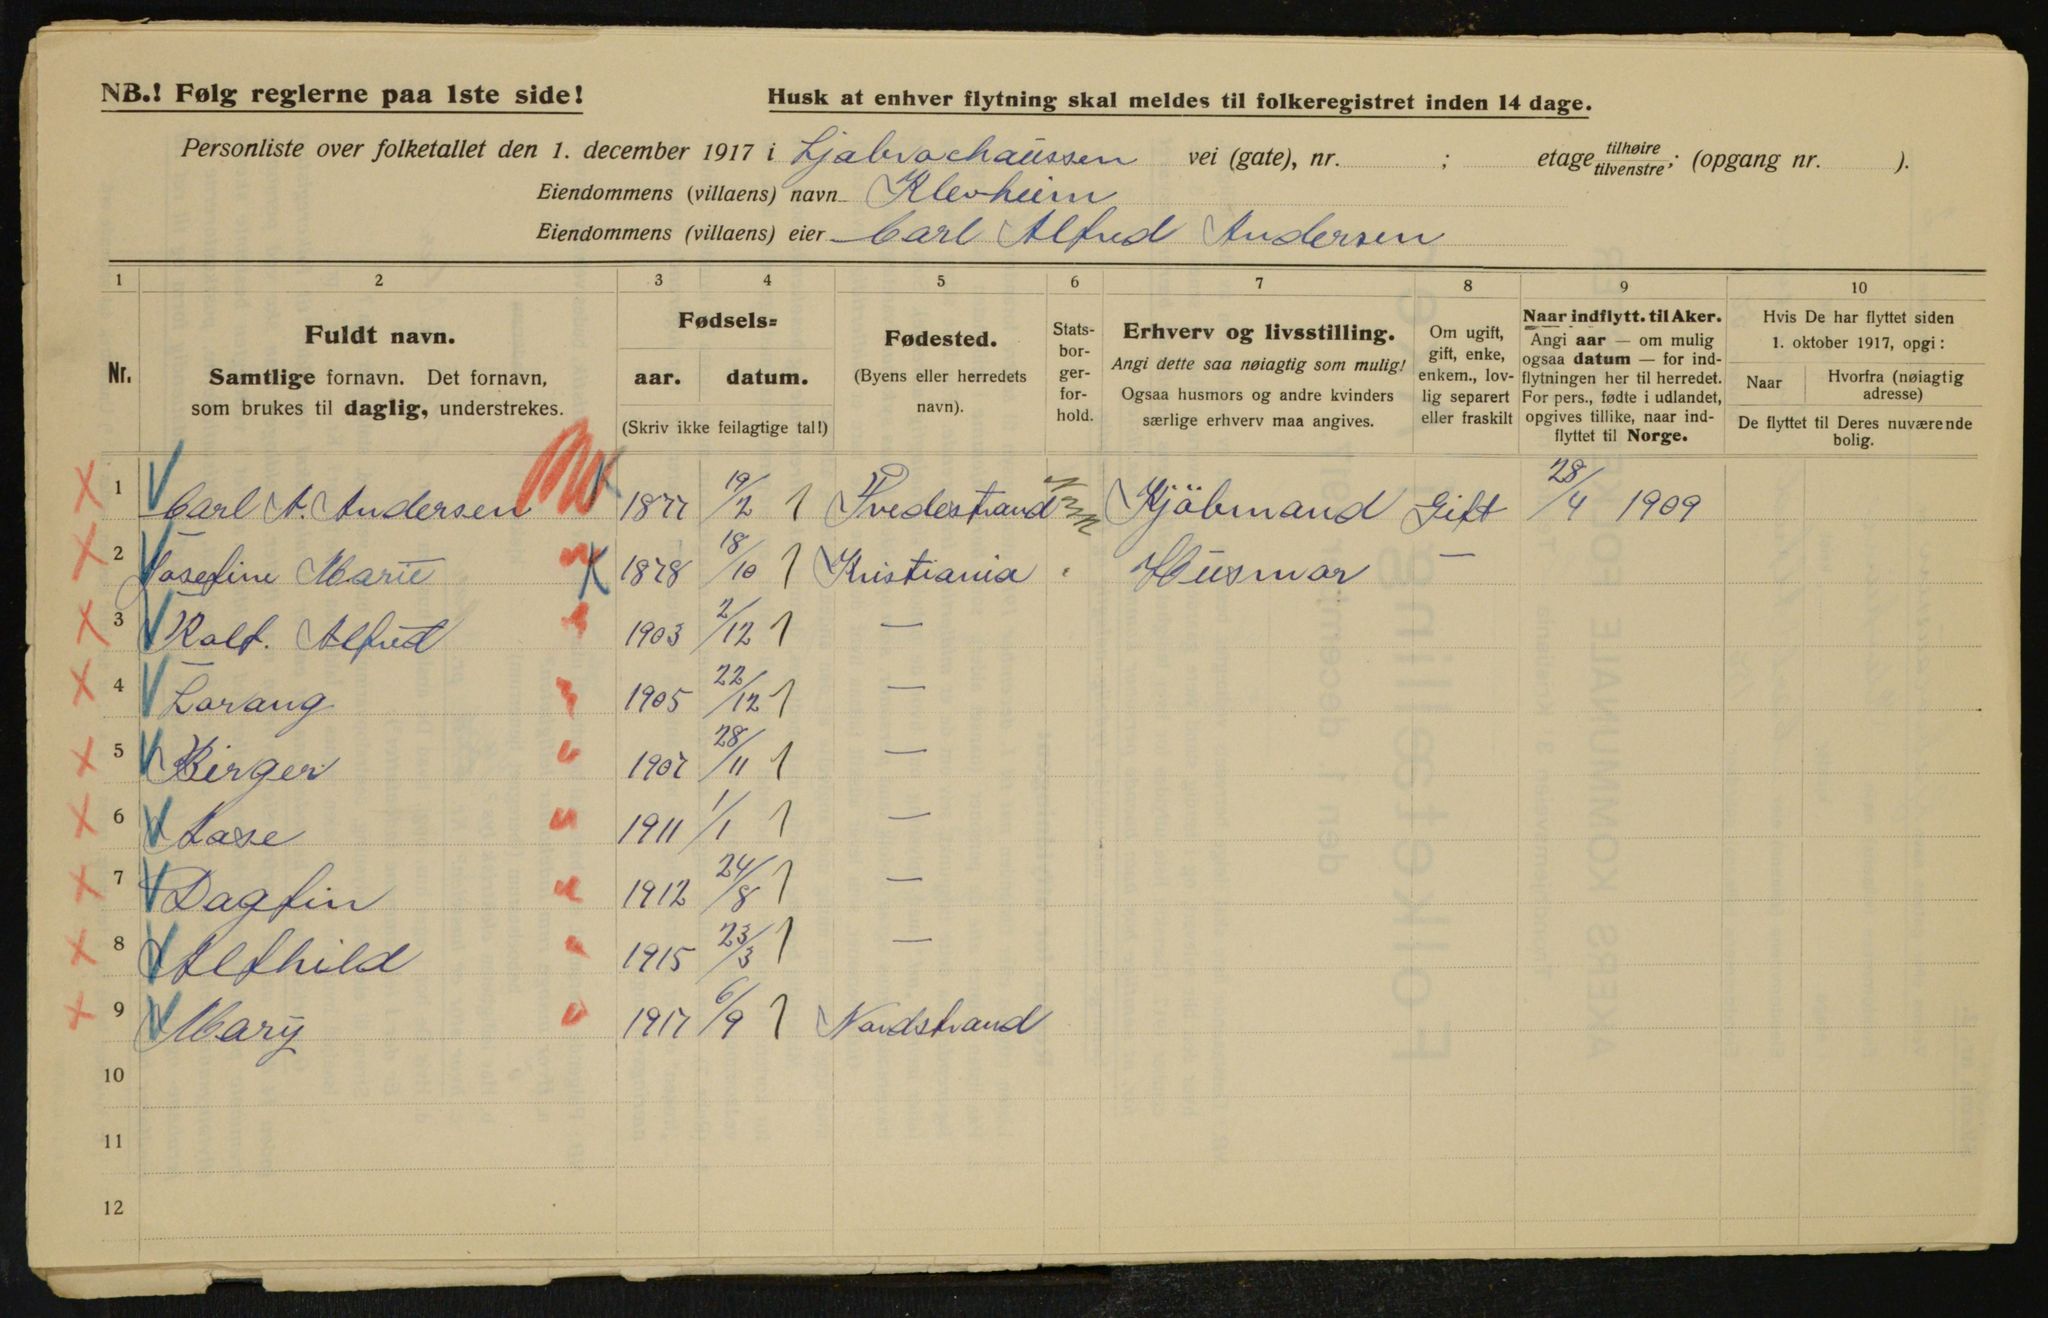 NB.! Følg reglerne paa 1ste side!
Husk at enhver flytning skal meldes til folkeregistret inden 14 dage.
Personliste over folketallet den 1. december 1917 i Ljabrochaussen vei (gate), nr. ; etage tilhøire tilvenstre; (opgang nr. ).
Eiendommens (villaens) navn Klevheim
Eiendommens (villaens) eier Carl Alfred Andersen
1 2 3 4 5 6 7 8 9 10
Nr.
Fuldt navn.
Samtlige fornavn. Det fornavn,
som brukes til daglig, understrekes.
Fødsels=
aar. datum.
(Skriv ikke feilagtige tal!)
Fødested.
(Byens eller herredets
navn).
Stats-
bor-
ger-
for-
hold.
Erhverv og livsstilling.
Angi dette saa nøiagtig som mulig!
Ogsaa husmors og andre kvinders
særlige erhverv maa angives.
Om ugift,
gift, enke,
enkem., lov-
lig separert
eller fraskilt
Naar indflytt. til Aker.
Angi aar — om mulig
ogsaa datum — for ind-
flytningen her til herredet.
For pers., fødte i udlandet,
opgives tillike, naar ind-
flyttet til Norge.
Hvis De har flyttet siden
1. oktober 1917, opgi:
Naar
Hvorfra (nøiagtig
adresse)
De flyttet til Deres nuværende
bolig.
1 Carl A. Andersen 1877 19/2 Tvedestrand Kjöbmand Gift 28/4 1909
2 Josefine Marie 1878 18/10 Kristiania Husmor —
3 Rolf. Alfred 1903 2/12 —
4 Lorang 1905 22/12 —
5 Birger 1907 28/11 —
6 Aase 1911 1/1 —
7 Dagfin 1912 24/8 —
8 Alfhild 1915 23/3 —
9 Mary 1917 6/9 Nordstrand
10
11
12